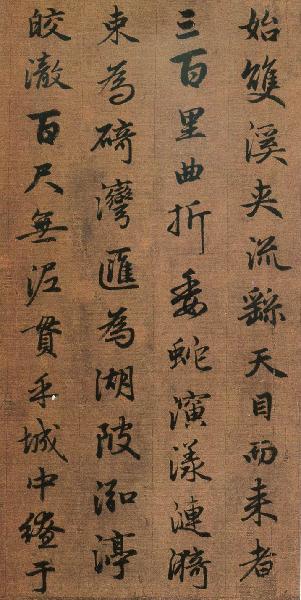 始雙溪夾流繇天目而來者
三百里曲折委蛇演漾漣漪
束為碕灣匯為湖陂泓渟
皎澈百尺無泥貫乎城中繚于